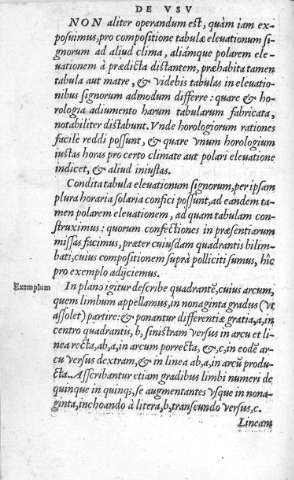 DE VSV
NON aliter operandum est, quàm iam ex-
posuimus, pro compositione tabulæ eleuationum si-
gnorum ad aliud clima, aliámque polarem ele-
uationem à prædicta distantem, præhabita tamen
tabula aut matre, & videbis tabulas in eleuatio-
nibus signorum admodum differre: quare & ho-
rologia adiumento harum tabularum fabricata,
notabiliter distabunt. Vnde horologiorum rationes
facilè reddi possunt, & quare vnum horologium
iustas horas pro certo climate aut polari eleuatione
indicet, & aliud iniustas.
Condita tabula eleuationum signorum, per ipsam
plura horaria solaria confici possunt, ad eandem ta-
men polarem eleuationem, ad quam tabulam con-
struximus: quorum confectiones in præsentiarum
missas facimus, præter cuiusdam quadrantis bilim-
bati, cuius compositionem suprà polliciti sumus, hîc
pro exemplo adijciemus.
Exemplum
In plano igitur describe quadrantē, cuius arcum,
quem limbum appellamus, in nonaginta gradus (vt
assolet) partire: & ponantur differentiæ gratia, a, in
centro quadrantis, b, sinistram versus in arcu et li-
nea recta, ab, a, in arcum porrecta, &, c, in eodē ar-
cu versus dextram, & in linea ab, a, in arcū produ-
cta. Ascribantur etiam gradibus limbi numeri de
quinque in quinq;, se augmentantes vsque in nona-
ginta, inchoando à litera, b, transeundo versus, c.
Lineam